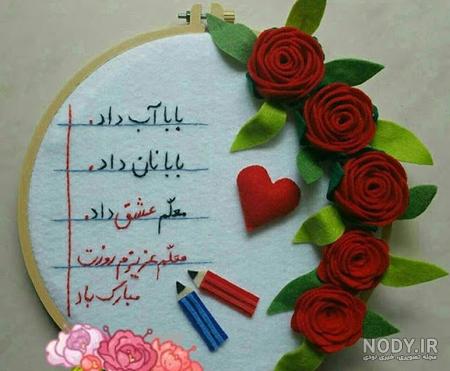 بابا آب داد.
بابا نان داد.
معلّم عشق داد.
معلّم عزیزم روزت
مبارک باد
NODY.IR
مجله تصویری، خبری نودی